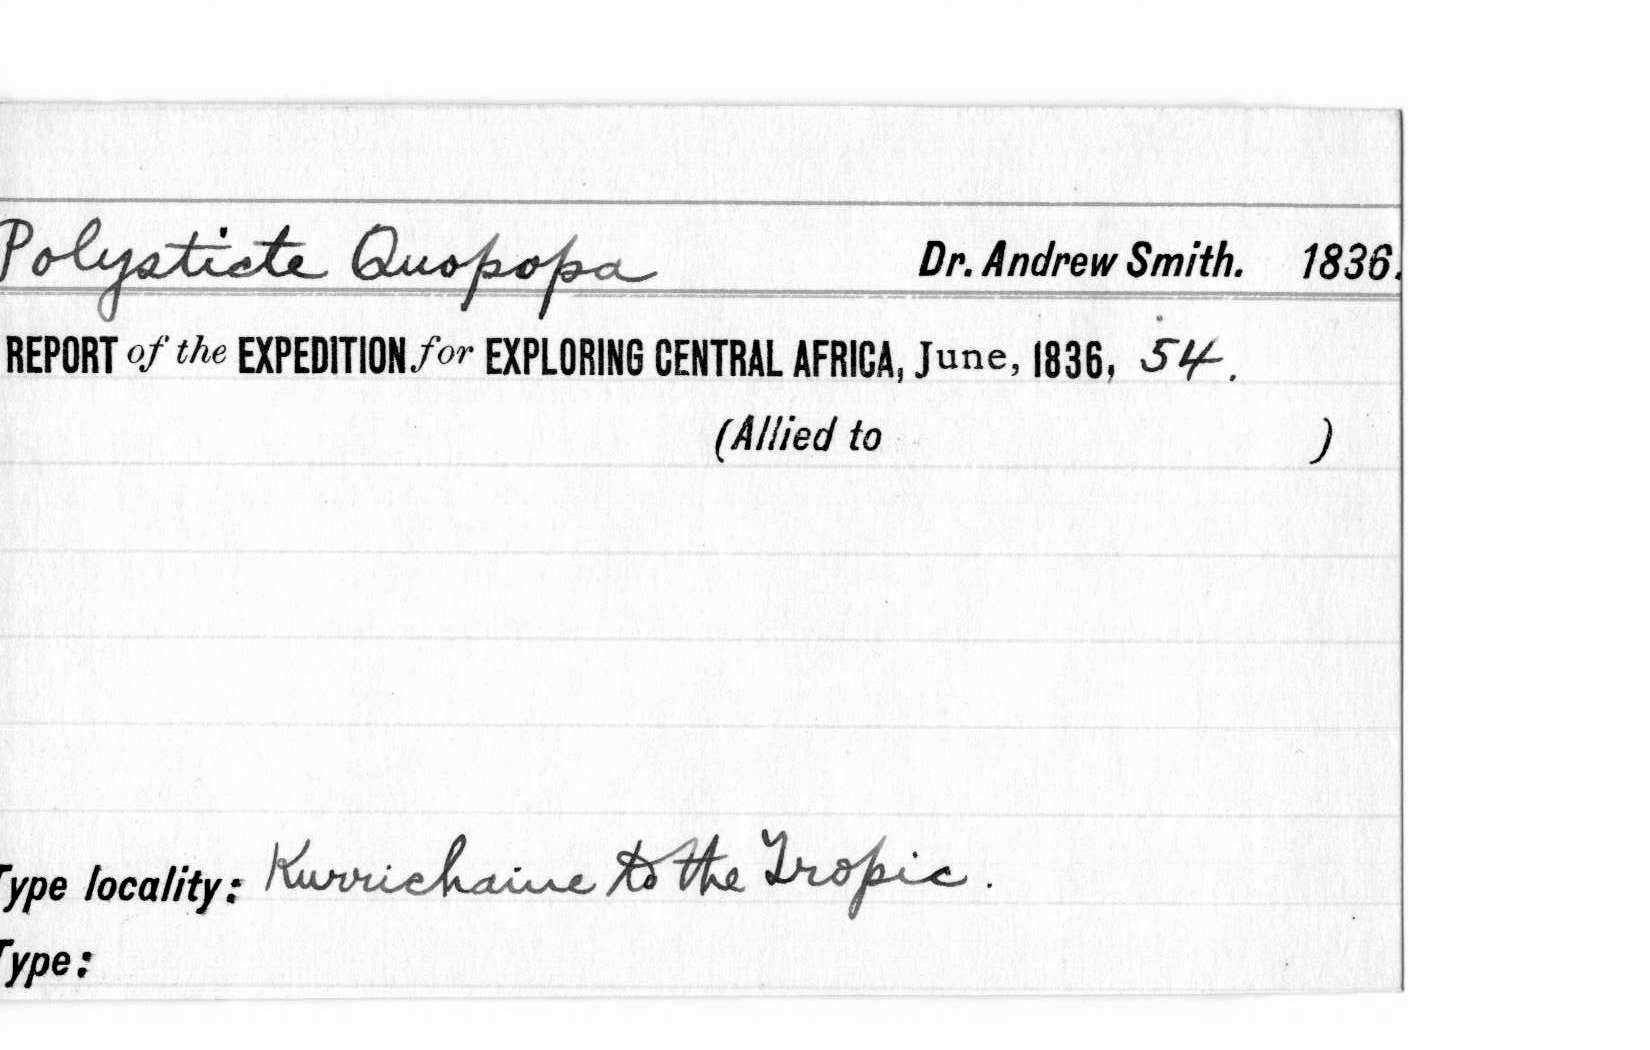 Polysticte Quopopa Dr. Andrew Smith. 1836.
REPORT of the EXPEDITION for EXPLORING CENTRAL AFRICA, June, 1836, 54.
(Allied to )
Type locality: Kurrichaine to the Tropic.
Type: